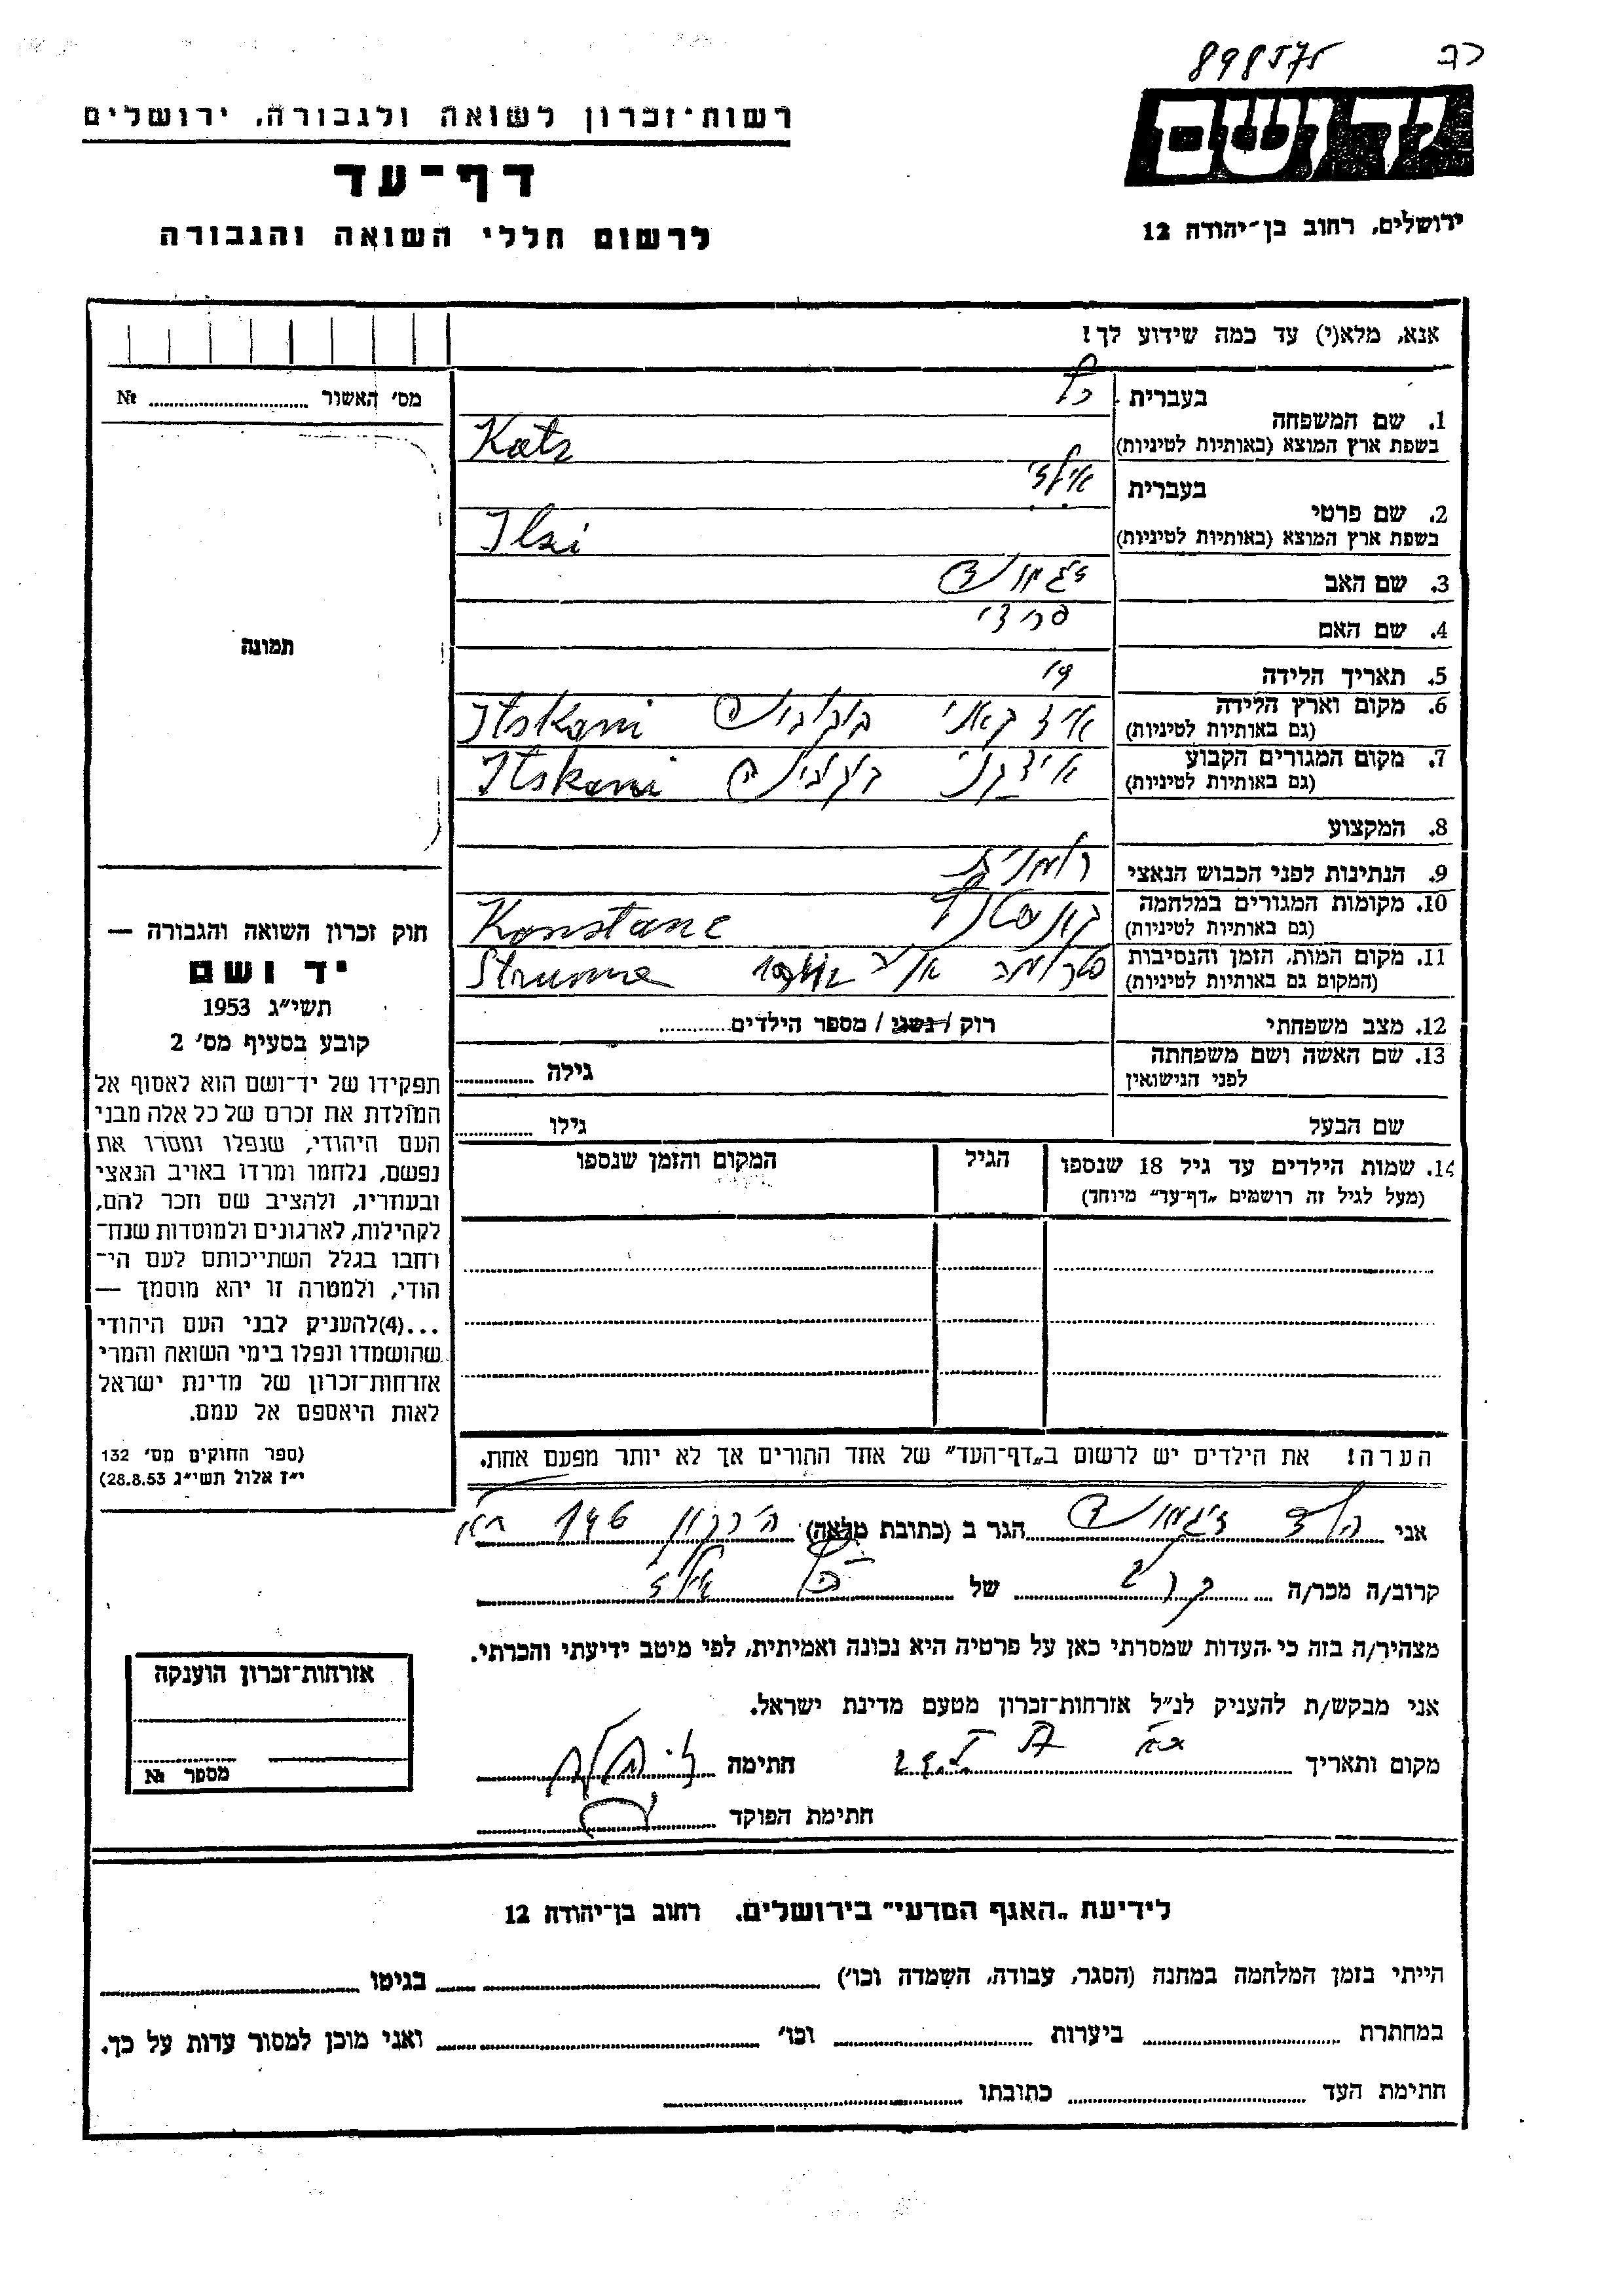 898575
יד ושם
ירושלים, רחוב בן־יהודה 12
רשות־זכרון לשואה ולגבורה, ירושלים
דף־עד
לרשום חללי השואה והגבורה
אנא, מלא(י) עד כמה שידוע לך!
מס׳ האשור № 
תמונה
1. שם המשפחה
בעברית כץ
בשפת ארץ המוצא (באותיות לטיניות) Katz
2. שם פרטי
בעברית אילזי
בשפת ארץ המוצא (באותיות לטיניות) Ilzi
3. שם האב זיגמונד
4. שם האם
5. תאריך הלידה
6. מקום וארץ הלידה
(גם באותיות לטיניות) איצקאני בוקובינה Itskani
7. מקום המגורים הקבוע
(גם באותיות לטיניות) איצקני בוקובינה Itskani
8. המקצוע
9. הנתינות לפני הכבוש הנאצי רומנית
10. מקומות המגורים במלחמה
(גם באותיות לטיניות) קונסטנץ Konstanc
11. מקום המות, הזמן והנסיבות
(המקום גם באותיות לטיניות) סטרומה Struma
12. מצב משפחתי רוק / נשוי / מספר הילדים
13. שם האשה ושם משפחתה
לפני הנישואין גילה
שם הבעל גילו
14. שמות הילדים עד גיל 18 שנספו
(מעל לגיל זה רושמים „דף־עד״ מיוחד)
הגיל
המקום והזמן שנספו
חוק זכרון השואה והגבורה —
יד ושם
תשי״ג 1953
קובע בסעיף מס׳ 2
תפקידו של יד־ושם הוא לאסוף אל
המולדת את זכרם של כל אלה מבני
העם היהודי, שנפלו ומסרו את
נפשם, נלחמו ומרדו באויב הנאצי
ובעוזריו, ולהציב שם וזכר להם,
לקהילות, לארגונים ולמוסדות שנח־
רחבו בגלל השתייכותם לעם הי־
הודי, ולמטרה זו יהא מוסמך —
...(4)להעניק לבני העם היהודי
שהושמדו ונפלו בימי השואה והמרי
אזרחות־זכרון של מדינת ישראל
לאות היאספם אל עמם.
(ספר החוקים מס׳ 132
י״ז אלול תשי״ג 28.8.53)
הערה! את הילדים יש לרשום ב„דף־העד״ של אחד ההורים אך לא יותר מפעם אחת.
אני זיגמונד הגר ב (כתובת מלאה) הירקון
קרוב/ה מכר/ה קרוב של כץ אילזי
מצהיר/ה בזה כי העדות שמסרתי כאן על פרטיה היא נכונה ואמיתית, לפי מיטב ידיעתי והכרתי.
אני מבקש/ת להעניק לנ״ל אזרחות־זכרון מטעם מדינת ישראל.
מקום ותאריך חתימה
חתימת הפוקד
אזרחות־זכרון הוענקה
מספר №
לידיעת „האגף המדעי״ בירושלים. רחוב בן־יהודה 12
הייתי בזמן המלחמה במחנה (הסגר, עבודה, השמדה וכו׳) בגיטו
במחתרת ביערות וכו׳ ואני מוכן למסור עדות על כך.
חתימת העד כתובתו